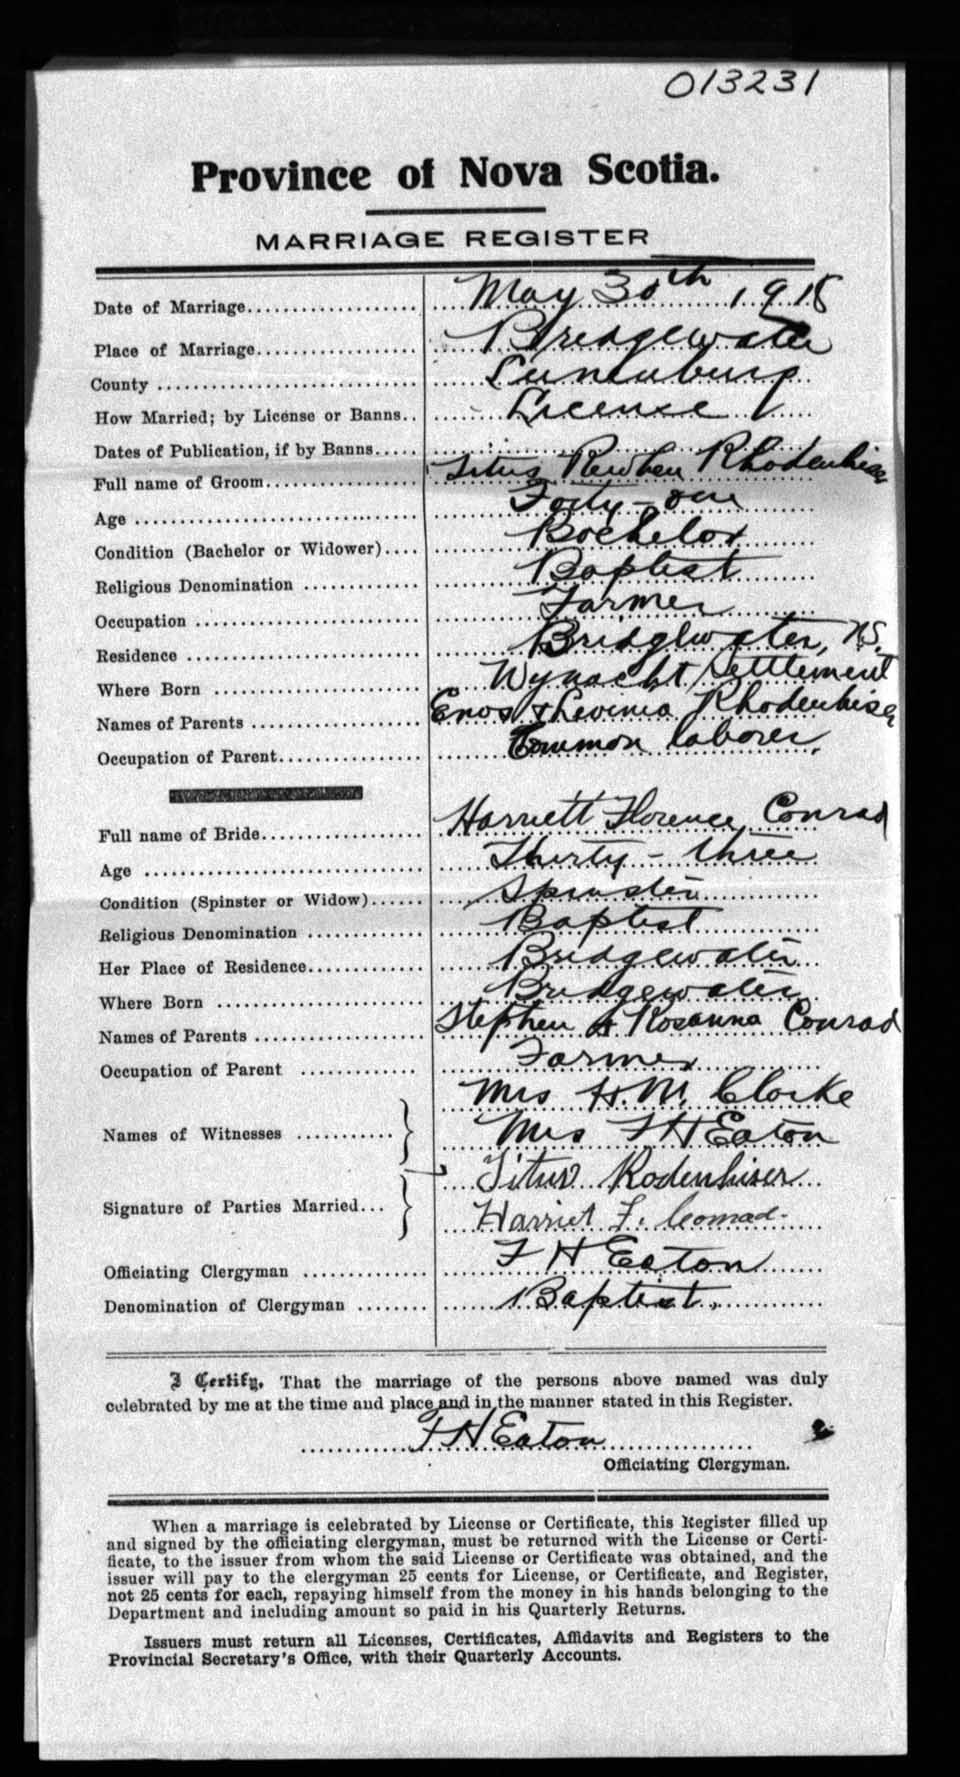 013231
Province of Nova Scotia.
MARRIAGE REGISTER
Date of Marriage.................... May 30th 1918
Place of Marriage.................. Bridgewater
County ........................... Lunenburg
How Married; by License or Banns.. Licence
Dates of Publication, if by Banns.....
Full name of Groom.................. Titus Reuben Rhodenhiser
Age ............................. Forty-one
Condition (Bachelor or Widower).... Bachelor
Religious Denomination ............. Baptist
Occupation ........................ Farmer
Residence ......................... Bridgewater, N.S.
Where Born ....................... Wynacht Settlement
Names of Parents ................... Enos & Levinia Rhodenhiser
Occupation of Parent................ Common laborer.
Full name of Bride.................. Harriett Florence Conrad
Age .............................. Thirty-three
Condition (Spinster or Widow)...... Spinster
Religious Denomination ............. Baptist
Her Place of Residence.............. Bridgewater
Where Born ....................... Bridgewater
Names of Parents ................... Stephen & Rosanna Conrad
Occupation of Parent ............... Farmer
Mrs H. M. Clarke
Names of Witnesses ........... Mrs F H Eaton
Titus Rodenhiser
Signature of Parties Married... Harriet F. Conrad.
Officiating Clergyman .............. F H Eaton
Denomination of Clergyman ........ Baptist.
I Certify, That the marriage of the persons above named was duly
celebrated by me at the time and place and in the manner stated in this Register.
F H Eaton
Officiating Clergyman.
When a marriage is celebrated by License or Certificate, this Register filled up
and signed by the officiating clergyman, must be returned with the License or Certi-
ficate, to the issuer from whom the said License or Certificate was obtained, and the
issuer will pay to the clergyman 25 cents for License, or Certificate, and Register,
not 25 cents for each, repaying himself from the money in his hands belonging to the
Department and including amount so paid in his Quarterly Returns.
Issuers must return all Licenses, Certificates, Affidavits and Registers to the
Provincial Secretary's Office, with their Quarterly Accounts.